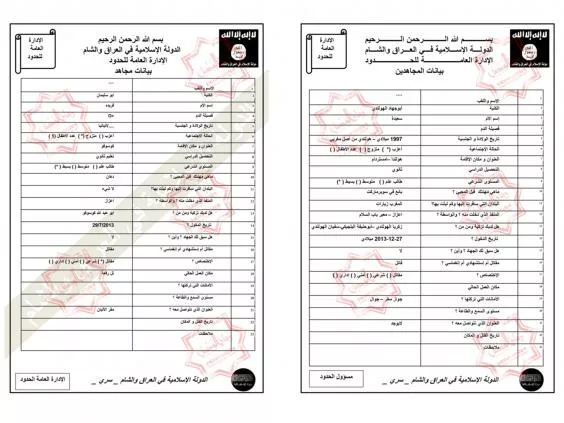 الإدارة
العامة
للحدود
بسم الله الرحمن الرحيم
الدولة الإسلامية في العراق والشام
الإدارة العامة للحدود
بيانات مجاهد
الإسم واللقب
الكنية
ابو سليمان
إسم الأم
فريده
فصيلة الدم
O+
تاريخ الولادة و الجنسية
الحالة الإجتماعية
أعزب ( ) متزوج ( * ) عدد الأطفال ( 1 )
العنوان و مكان الإقامة
كوسوفو
التحصيل الدراسي
تعليم ثانوي
المستوى الشرعي
طالب علم ( ) متوسط ( ) بسيط ( * )
ماهي مهنتك قبل المجيئ ؟
دهان
البلدان التي سافرت إليها وكم لبثت بها؟
لا شيء
المنفذ الذي دخلت منه ؟ والواسطة ؟
اعزاز
هل لديك تزكية ومن من ؟
ابو عبد الله كوسوفو
تاريخ الدخول ؟
29/7/2013
هل سبق لك الجهاد ؟ وأين ؟
لا
مقاتل أم إستشهادي أم إنغماسي ؟
مقاتل
الإختصاص ؟
مقاتل ( * ) شرعي ( ) أمني ( ) اداري ( )
مكان العمل الحالي
الأمانات التي تركتها ؟
مستوى السمع والطاعة ؟
العنوان الذي نتواصل معه ؟
تاريخ القتل و المكان
ملاحظات
الدولة الإسلامية في العراق والشام _ سري _
الإدارة العامة الحدود
الإدارة
العامة
للحدود
بسم الله الرحمن الرحيم
الدولة الإسلامية في العراق والشام
الإدارة العامة للحدود
بيانات المجاهدين
الإسم واللقب
الكنية
ابوجهاد الهولندي
إسم الأم
سعيدة
فصيلة الدم
تاريخ الولادة و الجنسية
1997 ميلادي – هولندي من أصل مغربي
الحالة الإجتماعية
أعزب ( * ) متزوج ( ) عدد الأطفال ( )
العنوان و مكان الإقامة
هولندا – امستردام
التحصيل الدراسي
ثانوي
المستوى الشرعي
طالب علم ( ) متوسط ( ) بسيط ( * )
ماهي مهنتك قبل المجيئ ؟
بائع في سوبرماركت
البلدان التي سافرت إليها وكم لبثت بها؟
المغرب زيارات
المنفذ الذي دخلت منه ؟ والواسطة ؟
اعزاز – معبر باب السلام
هل لديك تزكية ومن من ؟
تاريخ الدخول ؟
27-12-2013 ميلادي
هل سبق لك الجهاد ؟ وأين ؟
لا
مقاتل أم إستشهادي أم إنغماسي ؟
مقاتل
الإختصاص ؟
مكان العمل الحالي
الأمانات التي تركتها ؟
جواز سفر – جوال
مستوى السمع والطاعة ؟
العنوان الذي نتواصل معه ؟
لايوجد
تاريخ القتل و المكان
ملاحظات
الدولة الإسلامية في العراق والشام _ سري _
مسؤول الحدود